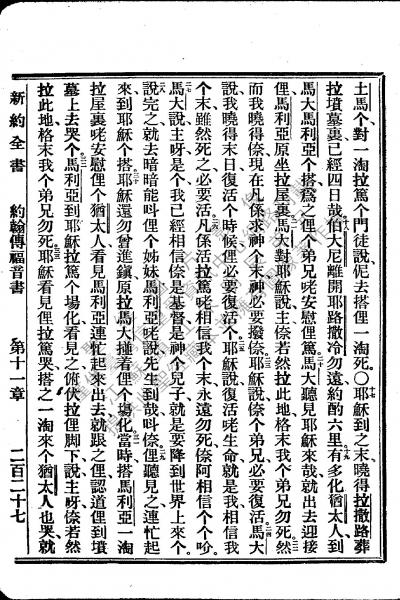 土馬个對一淘拉篤个門徒說伲去搭俚一淘死〇耶穌到之末曉得拉撒路葬
拉墳墓裏已經四日哉伯大尼離開耶路撒冷勿遠約酌六里有多化猶太人到
馬大馬利亞个搭爲之俚个弟兄咾安慰俚篤馬大聽見耶穌來哉就出去迎接
俚馬利亞原坐拉屋裏馬大對耶穌說主㑚若然拉此地格末我个弟兄勿死然
而我曉得㑚現在凡係求神个末神必要撥㑚耶穌說㑚个弟兄必要復活馬大
說我曉得末日復活个時候俚必要復活个耶穌說復活咾生命就是我相信我
个末雖然死之必要活凡係活拉篤咾相信我个末永遠勿死㑚阿相信个个吤
馬大說主呀是个我已經相信㑚是基督是神个兒子就是要降到世界上來个
說完之就去暗暗能呌俚个姊妹馬利亞咾說先生到哉呌㑚俚聽見之連忙起
來到耶穌个搭耶穌還勿曾進鎭原拉馬大撞着俚个場化當時搭馬利亞一淘
拉屋裏咾安慰俚个猶太人看見馬利亞連忙起來出去就跟之俚認道俚到墳
墓上去哭个馬利亞到耶穌拉篤个場化看見之俯伏拉俚脚下說主呀㑚若然
拉此地格末我个弟兄勿死耶穌看見俚拉篤哭搭之一淘來个猶太人也哭就
新約全書 約翰傳福音書 第十一章 二百二十七